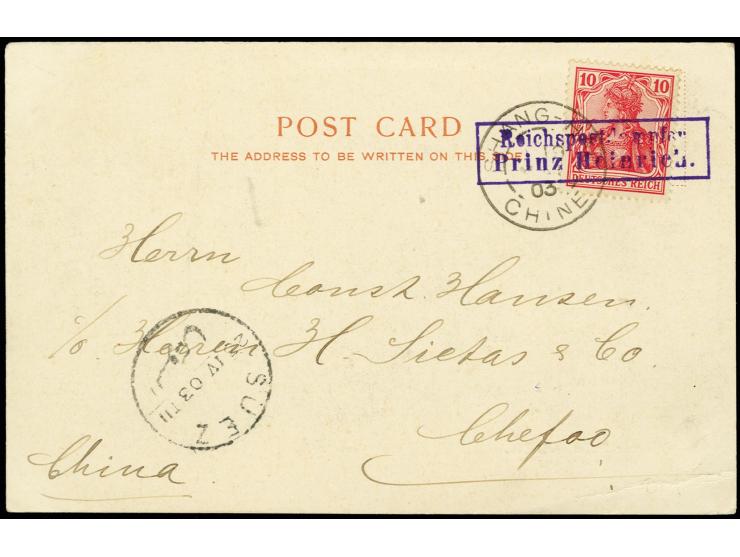 10 10
POST CARD
THE ADDRESS TO BE WRITTEN ON THIS SIDE
Prinz Heinrich.
DEUTSCHES REICH
SHANG-
03
CHINE
Herrn
Const. Hansen.
c/o Herren H. Sietas & Co.
Chefoo
China
SUEZ
IV 03